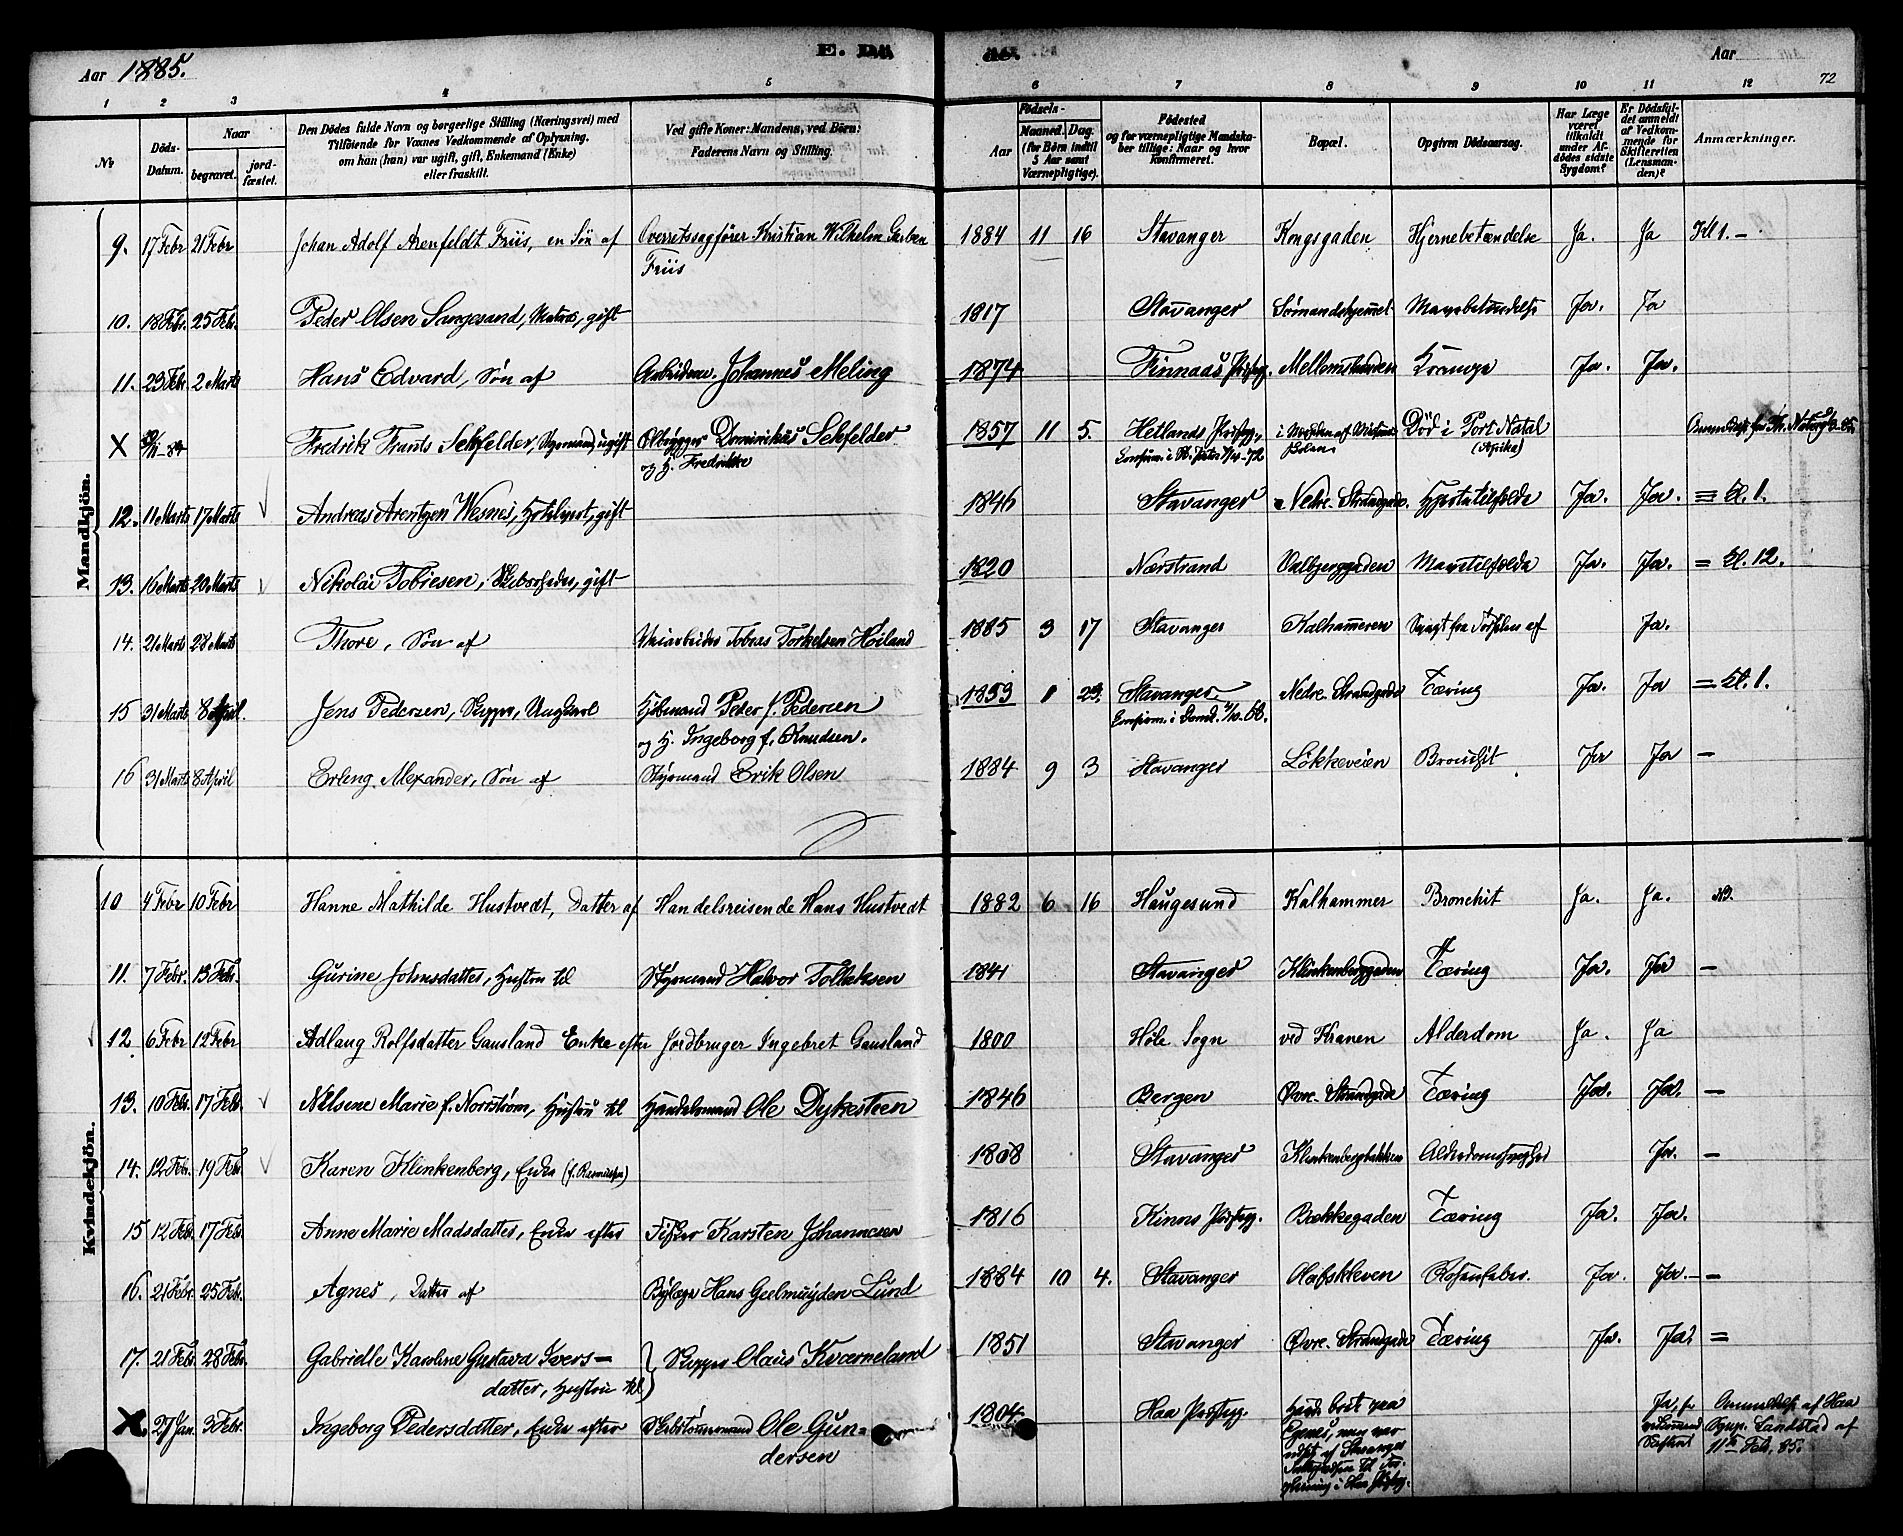 Aar 1885. E. Dö de. Aar 72
1 2 3 4 5 6 7 8 9 10 11 12
No Döds-Datum. Naar begravet. jord-fæstet. Den Dödes fulde Navn og borgerlige Stilling (Næringsvei) med Tilföiende for Voxnes Vedkommende af Oplysning. om han (hun) var ugift, gift, Enkemand (Enke) eller fraskilt. Ved gifte Koner: Mandens, ved Börn: Faderens Navn og Stilling. Födsels- Aar Maaned. Dag. (for Börn indtil 5 Aar samt Værnepligtige). Födested og for værnepligtige Mandskaber tillige: Naar og hvor konfirmeret. Bopæl. Opgiven Dödsaarsag. Har Læge været tilkaldt under Afdödes sidste Sygdom? Er Dödsfaldet anmeldt af Vedkommende for Skifteretten (Lensmanden)? Anmærkninger.
Mandkjön.
9. 17 Febr 21 Febr Johan Adolf Arenfeldt Friis, en Sön af Overretssagförer Kristian Wilhelm 1884 11 16 Stavanger Kongsgaden Hjernebetændelse Ja. Ja Kl 1. –
Friis
10. 18 Feb. 25 Feb. Peder Olsen Sangesand, Matros, gift 1817 Stavanger Sömandshjemmet Mavebetændelse Ja. Ja
11. 23 Feb. 2 Marts Hans Edvard, Sön af Arbeider Johannes Meling 1874 Finnaas Præstg. Ja. Ja.
X Fredrik Frants Sehfelder, Styrmand, ugift Ølbrygger Dominikus Sehfelder 1857 11 5. Hetlands Præstg., Död i Port Natal
og H. Fredrikke (Afrika)
12. 11 Marts 17 Marts Andreas Arentzen Wesnes, gift 1846 Stavanger Nedre Strandgade. Hjertetilfælde Ja. Ja. = Kl. 1.
13. 16 Marts 20 Marts Nikolai Tobiesen, gift 1820 Nærstrand Valbjerggaden Mavetilfælde Ja. Ja. = Kl. 12.
14. 21 Marts 28 Marts Thore, Sön af Veiarbeider Tobias Torkelsen Höiland 1885 3 17 Stavanger Kalhammeren Svagt fra Födselen af Ja.
15 31 Marts 8 April. Jens Pedersen, Skipper, Ungkarl Kjöbmand Peder J. Pedersen 1853 1 23. Stavanger Nedre Strandgade Tæring Ja. Ja = Kl. 1.
og H. Ingeborg f. Knudsen. Confirm. i Domk. 4/10. 68.
16 31 Marts 8 April Erling Alexander, Sön af Styrmand Erik Olsen 1884 9 3 Stavanger Lökkeveien Bronchit Ja Ja –
Kvindekjön.
10 4 Febr 10 Febr Hanne Mathilde Hustvedt, Datter af Handelsreisende Hans Hustvedt 1882 6 16 Haugesund Kalhammer Bronchit Ja. Ja.
11. 7 Febr. 13 Feb. Gurine Johnsdatter, Hustru til Styrmand Halvor Tollaksen 1841 Stavanger Klinkenberggaden Tæring Ja. Ja –
12 6 Febr 12 Febr Adlaug Rolfsdatter Gausland Enke efter Jordbruger Ingebret Gausland 1800 Höle Sogn ved Kranen Alderdom Ja. Ja
13. 10 Feb. 17 Feb. Nilsine Marie f. Norrström, Hustru til Handelsmand Ole Dykesteen 1846 Bergen Øvre Strandgade Tæring Ja. Ja. –
14. 12 Feb. 19 Feb. Karen Klinkenberg, Enke (f. Rasmussen) 1808 Stavanger Klinkenbergbakken Alderdomssvaghed Ja. –
15 12 Feb. 17 Feb. Anne Marie Madsdatter, Enke efter Fisker Karsten Johannesen 1816 Kinns Præstg. Bækkegaden Tæring Ja. Ja.
16. 21 Feb. 25 Feb. Agnes, Datter af Bylæge Hans Geelmuyden Lund 1884 10 4. Stavanger Olafskleven Rosenfeber. Ja. Ja. –
17. 21 Feb. 28 Feb. Gabrielle Karoline Gustava Ivers-datter, Hustru til } Skipper Olaus Kværneland 1851 Stavanger Øvre Strandgade Tæring Ja. Ja. =
X. 27 Jan. 3 Feb. Ingeborg Pedersdatter, Enke efter Ole Gun-dersen 1804 Haa Præstg. Anmeldt af Haa
Egenes, af Stavanger Landstad af
i Haa Præstg. 11te Feb. 85.